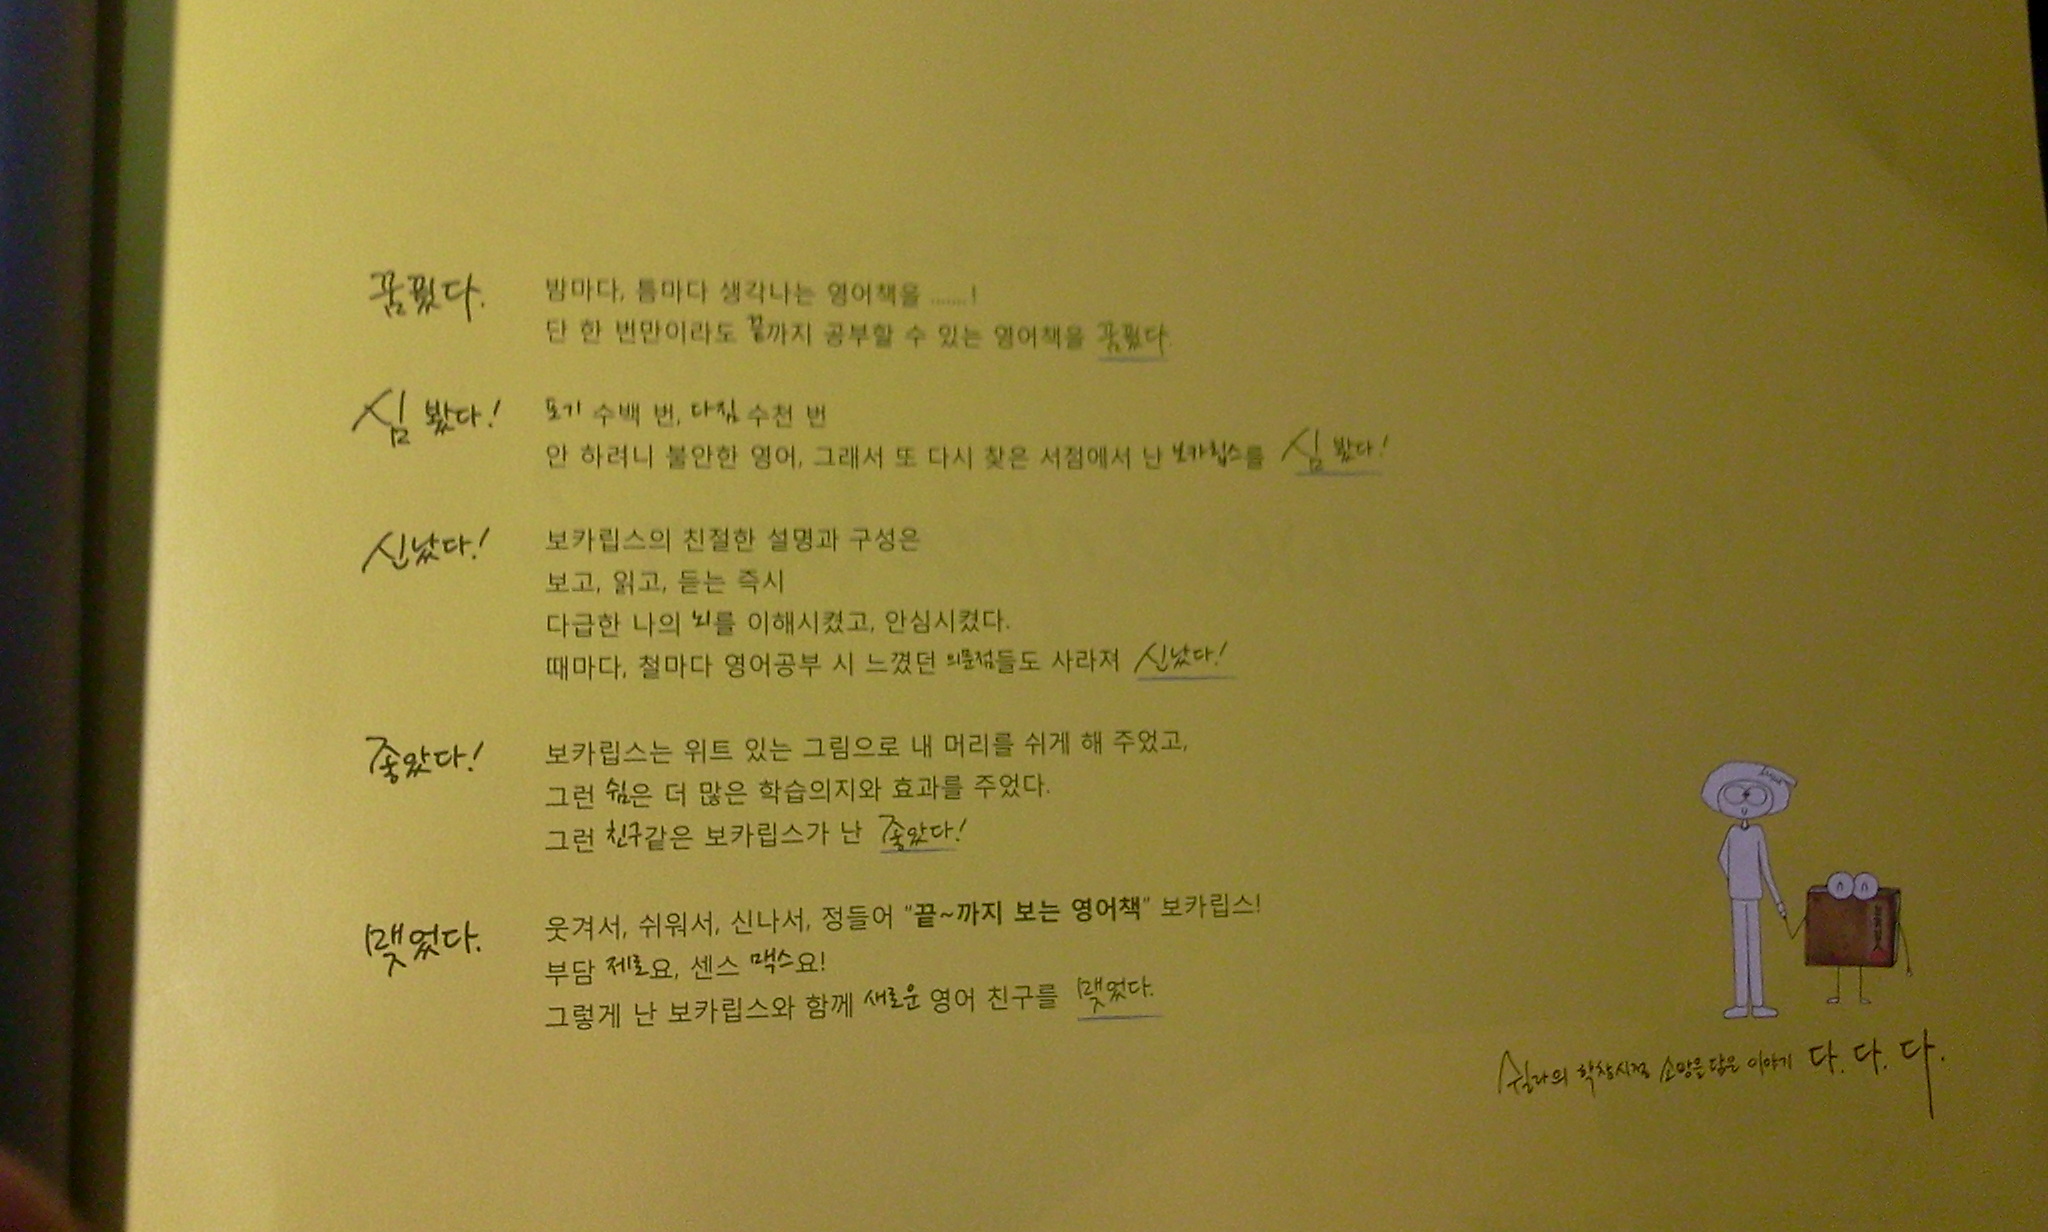 꿈꿨다.
밤마다, 틈마다 생각나는 영어책을 .......!
단 한 번만이라도 끝까지 공부할 수 있는 영어책을 꿈꿨다.
심 봤다!
포기 수백 번, 다짐 수천 번
안 하려니 불안한 영어, 그래서 또 다시 찾은 서점에서 난 보카립스를 심 봤다!
신났다!
보카립스의 친절한 설명과 구성은
보고, 읽고, 듣는 즉시
다급한 나의 뇌를 이해시켰고, 안심시켰다.
때마다, 철마다 영어공부 시 느꼈던 의문점들도 사라져 신났다!
좋았다!
보카립스는 위트 있는 그림으로 내 머리를 쉬게 해 주었고,
그런 쉼은 더 많은 학습의지와 효과를 주었다.
그런 친구같은 보카립스가 난 좋았다!
맺었다.
웃겨서, 쉬워서, 신나서, 정들어 "끝~까지 보는 영어책" 보카립스!
부담 제로요, 센스 맥스요!
그렇게 난 보카립스와 함께 새로운 영어 친구를 맺었다.
쉴라의 학창시절 소망을 담은 이야기 다. 다. 다.